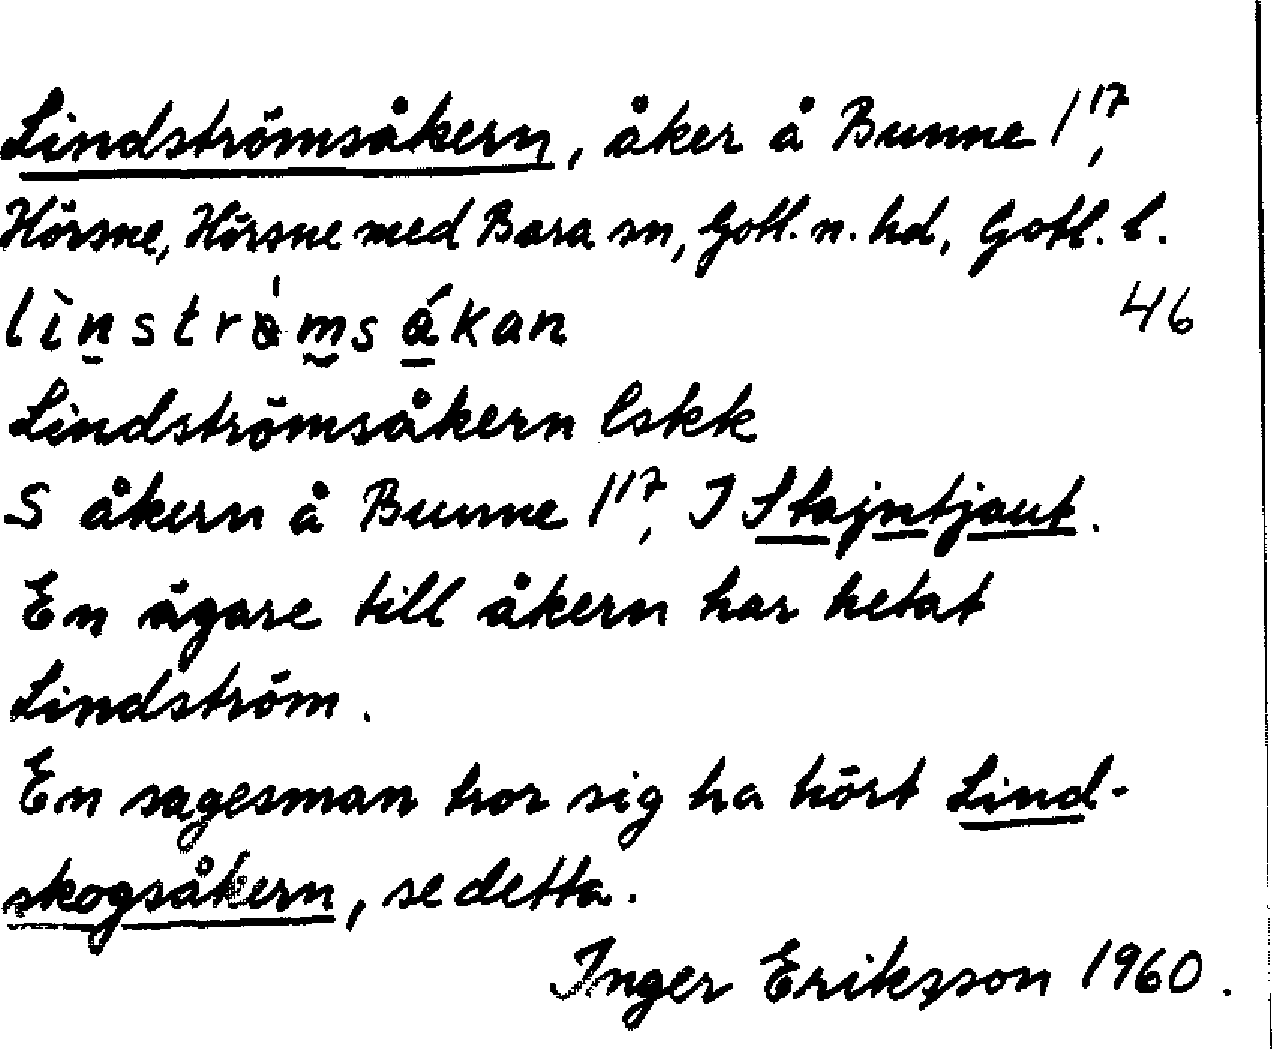 Lindströmsåkern, åker å Bunne 1¹⁷,
Hörsne, Hörsne med Bara sn, Gotl. n. hd, Gotl. l.
lìn̠strȧ̀m̰sá̠kan 46
Lindströmsåkern lskk
S åkern å Bunne 1¹⁷, I Stajntjaut.
En ägare till åkern har hetat
Lindström.
En sagesman tror sig ha hört Lind-
skogsåkern, se detta.
Inger Eriksson 1960.